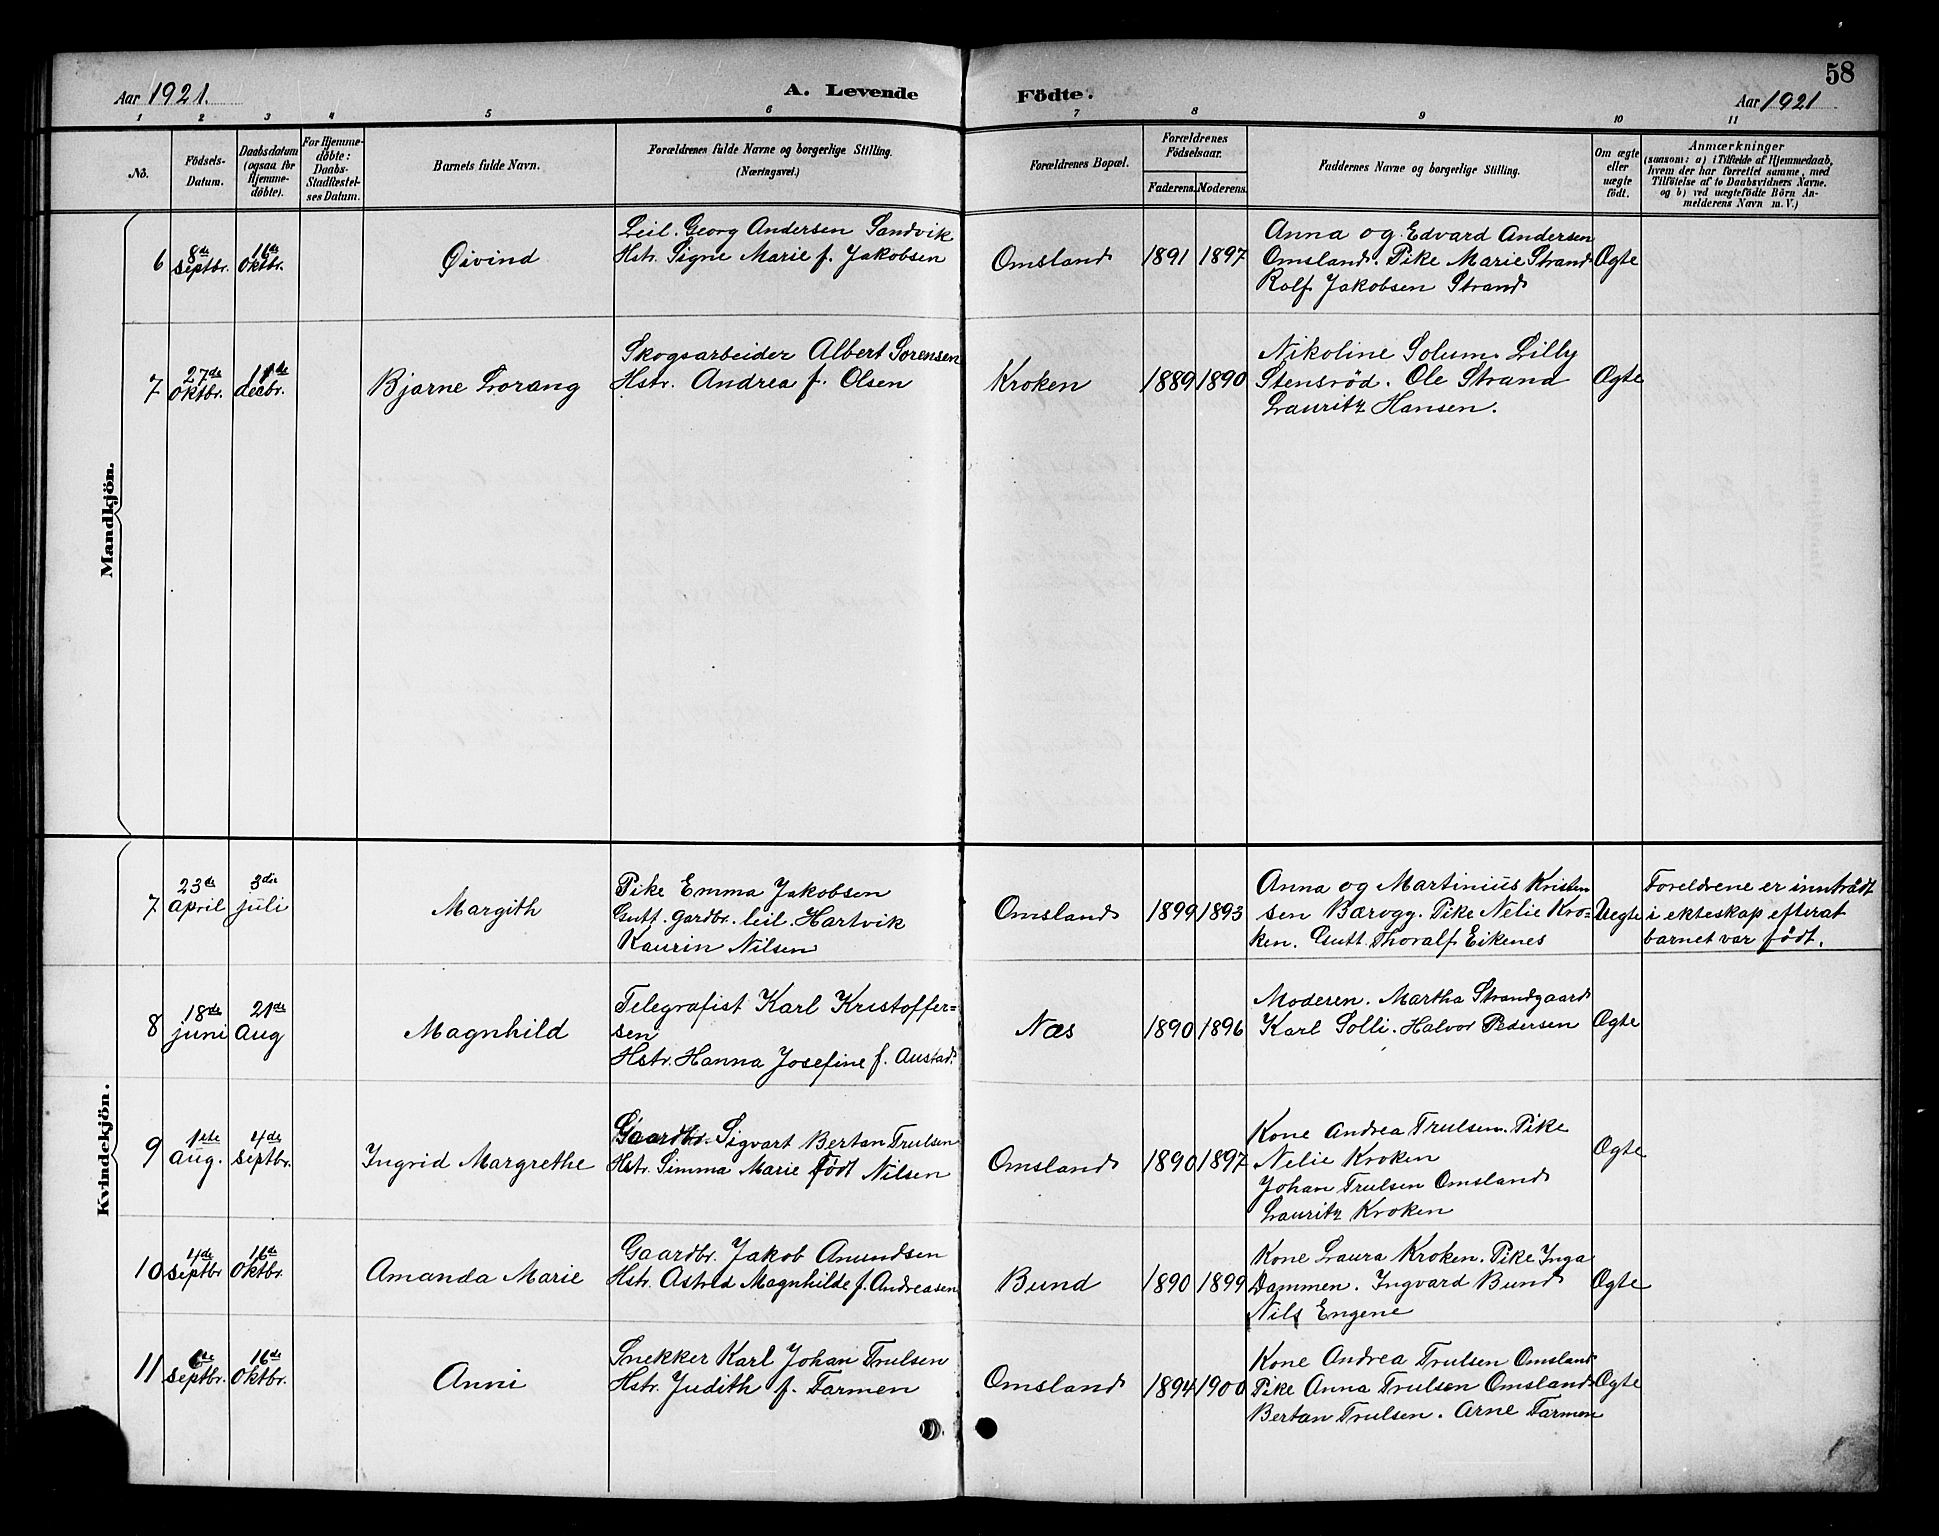 58
Aar 1921. A. Levende Födte. Aar 1921
1 2 3 4 5 6 7 8 9 10 11
No.
Födsels-
Datum.
Daabsdatum
(ogsaa for
Hjemme-
döbte).
For Hjemme-
döbte:
Daabs-
Stadfæstel-
ses Datum.
Barnets fulde Navn.
Forældrenes fulde Navne og borgerlige Stilling.
(Næringsvei.)
Forældrenes Bopæl.
Forældrenes
Födselsaar.
Faderens. Moderens.
Faddernes Navne og borgerlige Stilling.
Om ægte
eller
uægte
födt.
Anmærkninger
(saasom: a) i Tilfælde af Hjemmedaab,
hvem der har forrettet samme, med
Tilföielse af to Daabsvidners Navne.
og b) ved uægtefödte Börn An-
melderens Navn m. V.)
Mandkjön.
6
8de
septbr.
16de
oktbr.
Øivind
Leil. Georg Andersen Sandvik
Hstr. Signe Marie f. Jakobsen
Omsland
1891 1897
Anna og Edvard Andersen
Omsland. Pike Marie Strand
Rolf Jakobsen Strand
Ægte
7
27de
oktbr.
11de
decbr.
Bjarne Lorang
Skogsarbeider Albert Sorensen
Hstr. Andrea f. Olsen
Kroken
1889 1890
Nikoline Solum. Lilly
Stensröd. Ole Strand
Lauritz Hansen.
Ægte
Kvindekjön.
7
23de
april
3die
juli
Margith
Pike Emma Jakobsen
Gutt. gardbr. leil. Hartvik
Kaurin Nilsen
Omsland
1899 1893
Anna og Martinius Kristen
sen Bærogy. Pike Nelie Kro=
ken. Gutt Thoralf Eikenes
Uegte
Foreldrene er inntrådt
i ekteskap efterat
barnet var födt.
8
18de
juni
21de
Aug
Magnhild
Telegrafist Karl Kristoffer=
sen
Hstr. Hanna Josefine f. Austad.
Næs
1890 1896
Moderen. Martha Strandgaard
Karl Solli. Halvor Pedersen
Ægte
9
1ste
aug.
4de
septbr.
Ingrid Margrethe
Gaardbr. Sigvart Bertan Trulsen
Hstr. Simma Marie Födt Nilsen
Omsland
1890 1897
Kone Andrea Trulsen. Pike
Nelie Kroken
Johan Trulsen Omsland
Lauritz Kroken
Ægte
10
4de
septbr
16de
oktbr.
Amanda Marie
Gaardbr. Jakob Amundsen
Hstr. Astrid Magnhilde f. Andreasen
Bund
1890 1899
Kone Laura Kroken. Pike Inga
Dammen. Ingvard Bund
Nils Engene
Ægte
11
6de
septbr.
16de
oktbr.
Anni
Snekker Karl Johan Trulsen
Hstr. Judith f. Farmen
Omsland
1894 1900
Kone Andrea Trulsen Omsland
Pike Anna Trulsen Omsland
Bertan Trulsen. Arne Farmen
Ægte